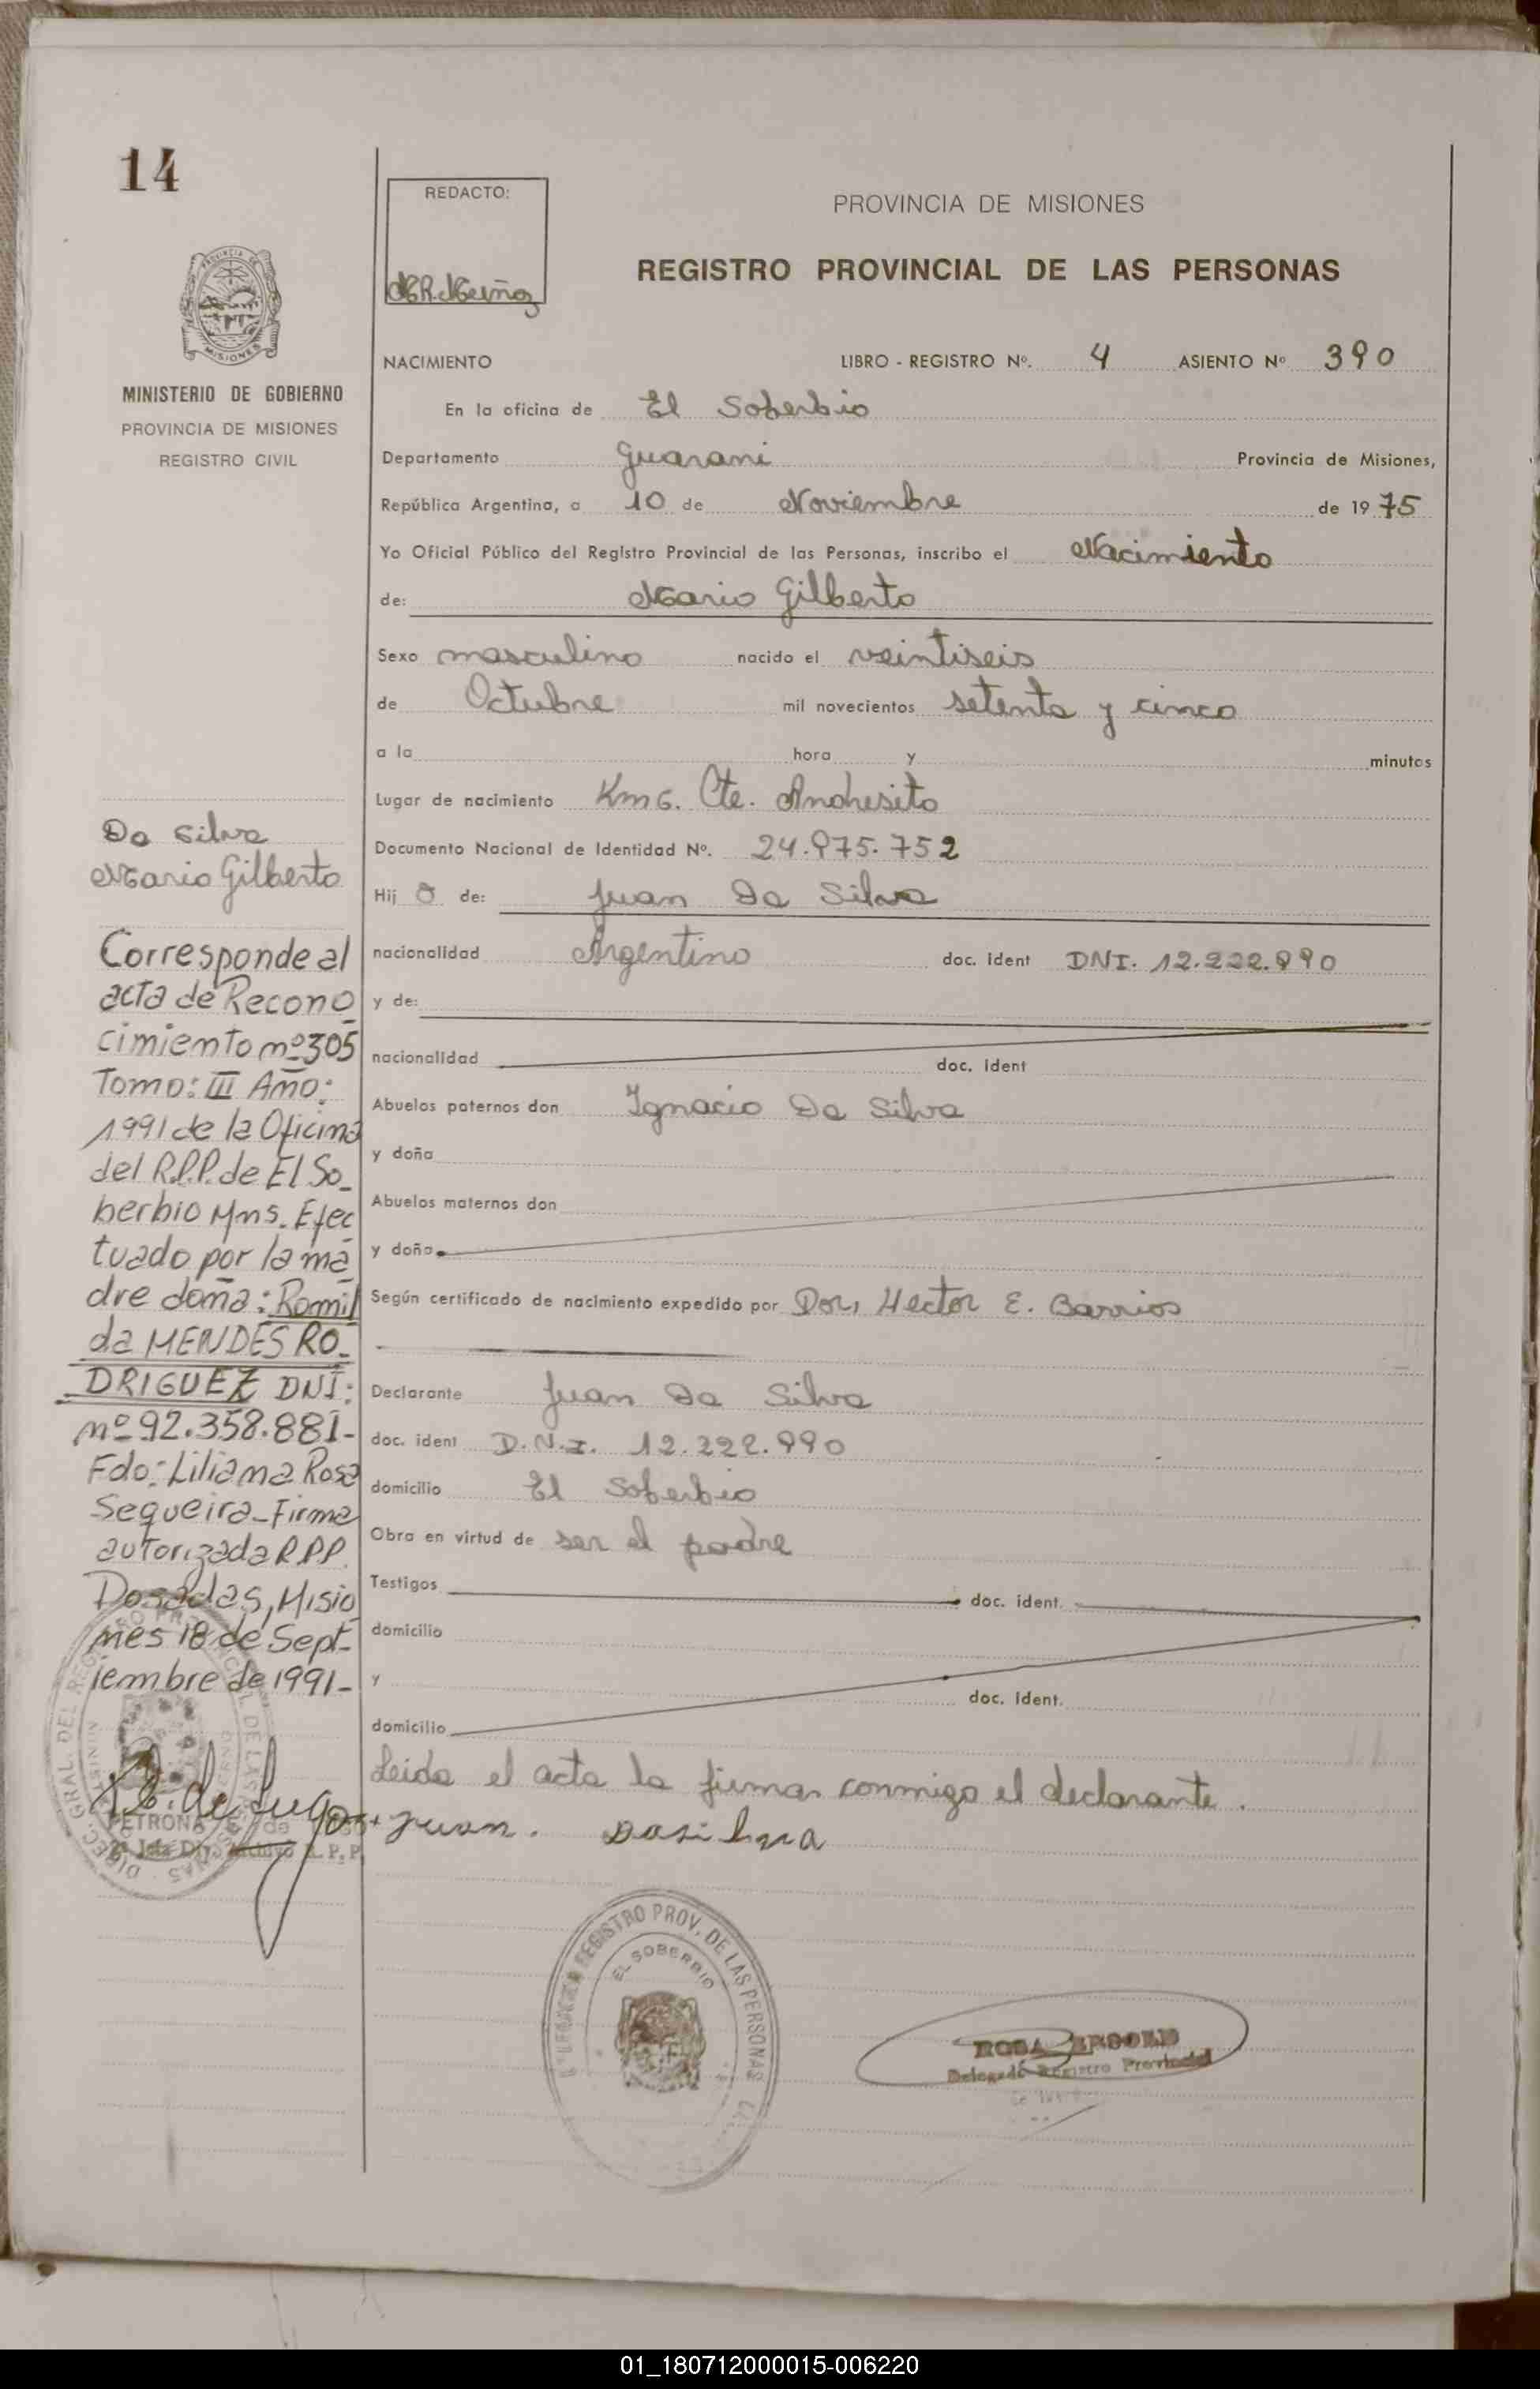 14
REDACTO:
PROVINCIA DE MISIONES
REGISTRO PROVINCIAL DE LAS PERSONAS
MISIONES
MINISTERIO DE GOBIERNO
PROVINCIA DE MISIONES
REGISTRO CIVIL
NACIMIENTO LIBRO - REGISTRO Nº. 4 ASIENTO Nº 390
En la oficina de El Soberbio
Departamento Guarani Provincia de Misiones,
República Argentina, a 10 de Noviembre de 1975
Yo Oficial Público del Registro Provincial de las Personas, inscribo el Nacimiento
de: Mario Gilberto
Sexo masculino nacido el veintiseis
de Octubre mil novecientos setenta y cinco
a la hora y minutos
Lugar de nacimiento Km6. Cte. Andresito
Documento Nacional de Identidad Nº. 24.975.752
Hij o de: Juan Da Silva
nacionalidad Argentino doc. ident DNI. 12.222.990
y de:
nacionalidad doc. ident
Abuelos paternos don Ignacio Da Silva
y doña
Abuelos maternos don
y doña
Según certificado de nacimiento expedido por Dor, Hector E. Barrios
Declarante Juan Da Silva
doc. ident D.N.I. 12.222.990
domicilio El Soberbio
Obra en virtud de ser el padre
Testigos doc. ident.
domicilio
y doc. ident.
domicilio
Leida el acta la firma conmigo el declarante.
Juan. Dasilva
Da Silva
Mario Gilberto
Corresponde al
acta de Recono
cimiento nº305
Tomo: III Año:
1991 de la Oficina
del R.P.P. de El So_
berbio Mns. Efec
tuado por la ma
dre doña: Romil
da MENDES RO_
DRIGUEZ DNI:
nº 92.358.881-
Fdo: Liliana Rosa
Sequeira_Firma
autorizada R.P.P.
Posadas, Misio
nes 18 de Sept-
iembre de 1991-
PETRONA
REGISTRO PROV. DE LAS PERSONAS
EL SOBERBIO
ROSA
Delegado Registro Provincial
01_180712000015-006220